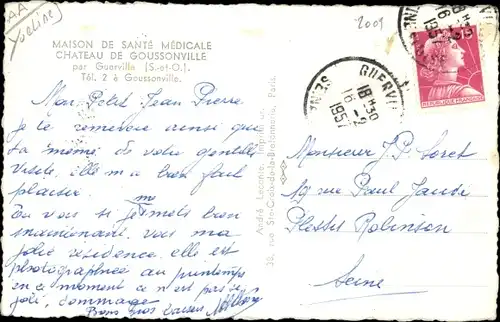 AA
Yveline
2009
MAISON DE SANTÉ MÉDICALE
CHATEAU DE GOUSSONVILLE
par Guerville (S.-et-O.)
Tél. 2 à Goussonville.
Mon Petit Jean Pierre
je te remercie ainsi que
ta mémé de votre gentille
visite, elle m'a bien fait
plaisir
Tu vois si je me mets bien
maintenant, vous ma
jolie résidence, elle est
photographiée au printemps
en ce moment ce n'est pas si
joli, dommage
Bons Gros baisers
André Leconte, Imprimeur
38, rue Ste-Croix-de-la-Bretonnerie, Paris.
GUERVILLE
18 H30
16 -2
1957
SEINE
18 H30
16 -2
1957
REPUBLIQUE FRANÇAISE
Monsieur J.P. Loret
rue Paul
Plessis Robinson
Seine